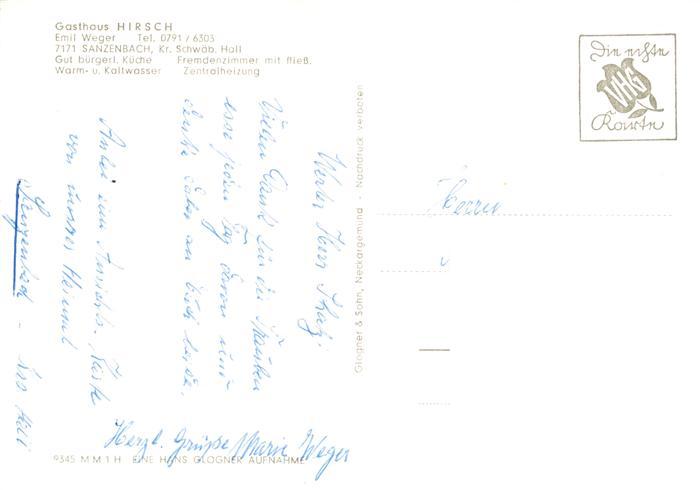 Gasthaus HIRSCH
Emil Weger Tel. 0791 / 6303
7171 SANZENBACH, Kr. Schwäb. Hall
Gut bürgerl. Küche Fremdenzimmer mit fließ.
Warm- u. Kaltwasser Zentralheizung
Die echte
VHG
Karte
Werter Herr
Vielen Dank für die
esse jeden Tag davon und
denke dabei an
Anbei eine Ansichts. Karte
von unserer Heimat
Sanzenbach -
Herzl. Grüße Marie Weger
Herrn
Glogner & Sohn, Neckargemünd - Nachdruck verboten
9345 M M 1 H EINE HANS GLOGNER AUFNAHME